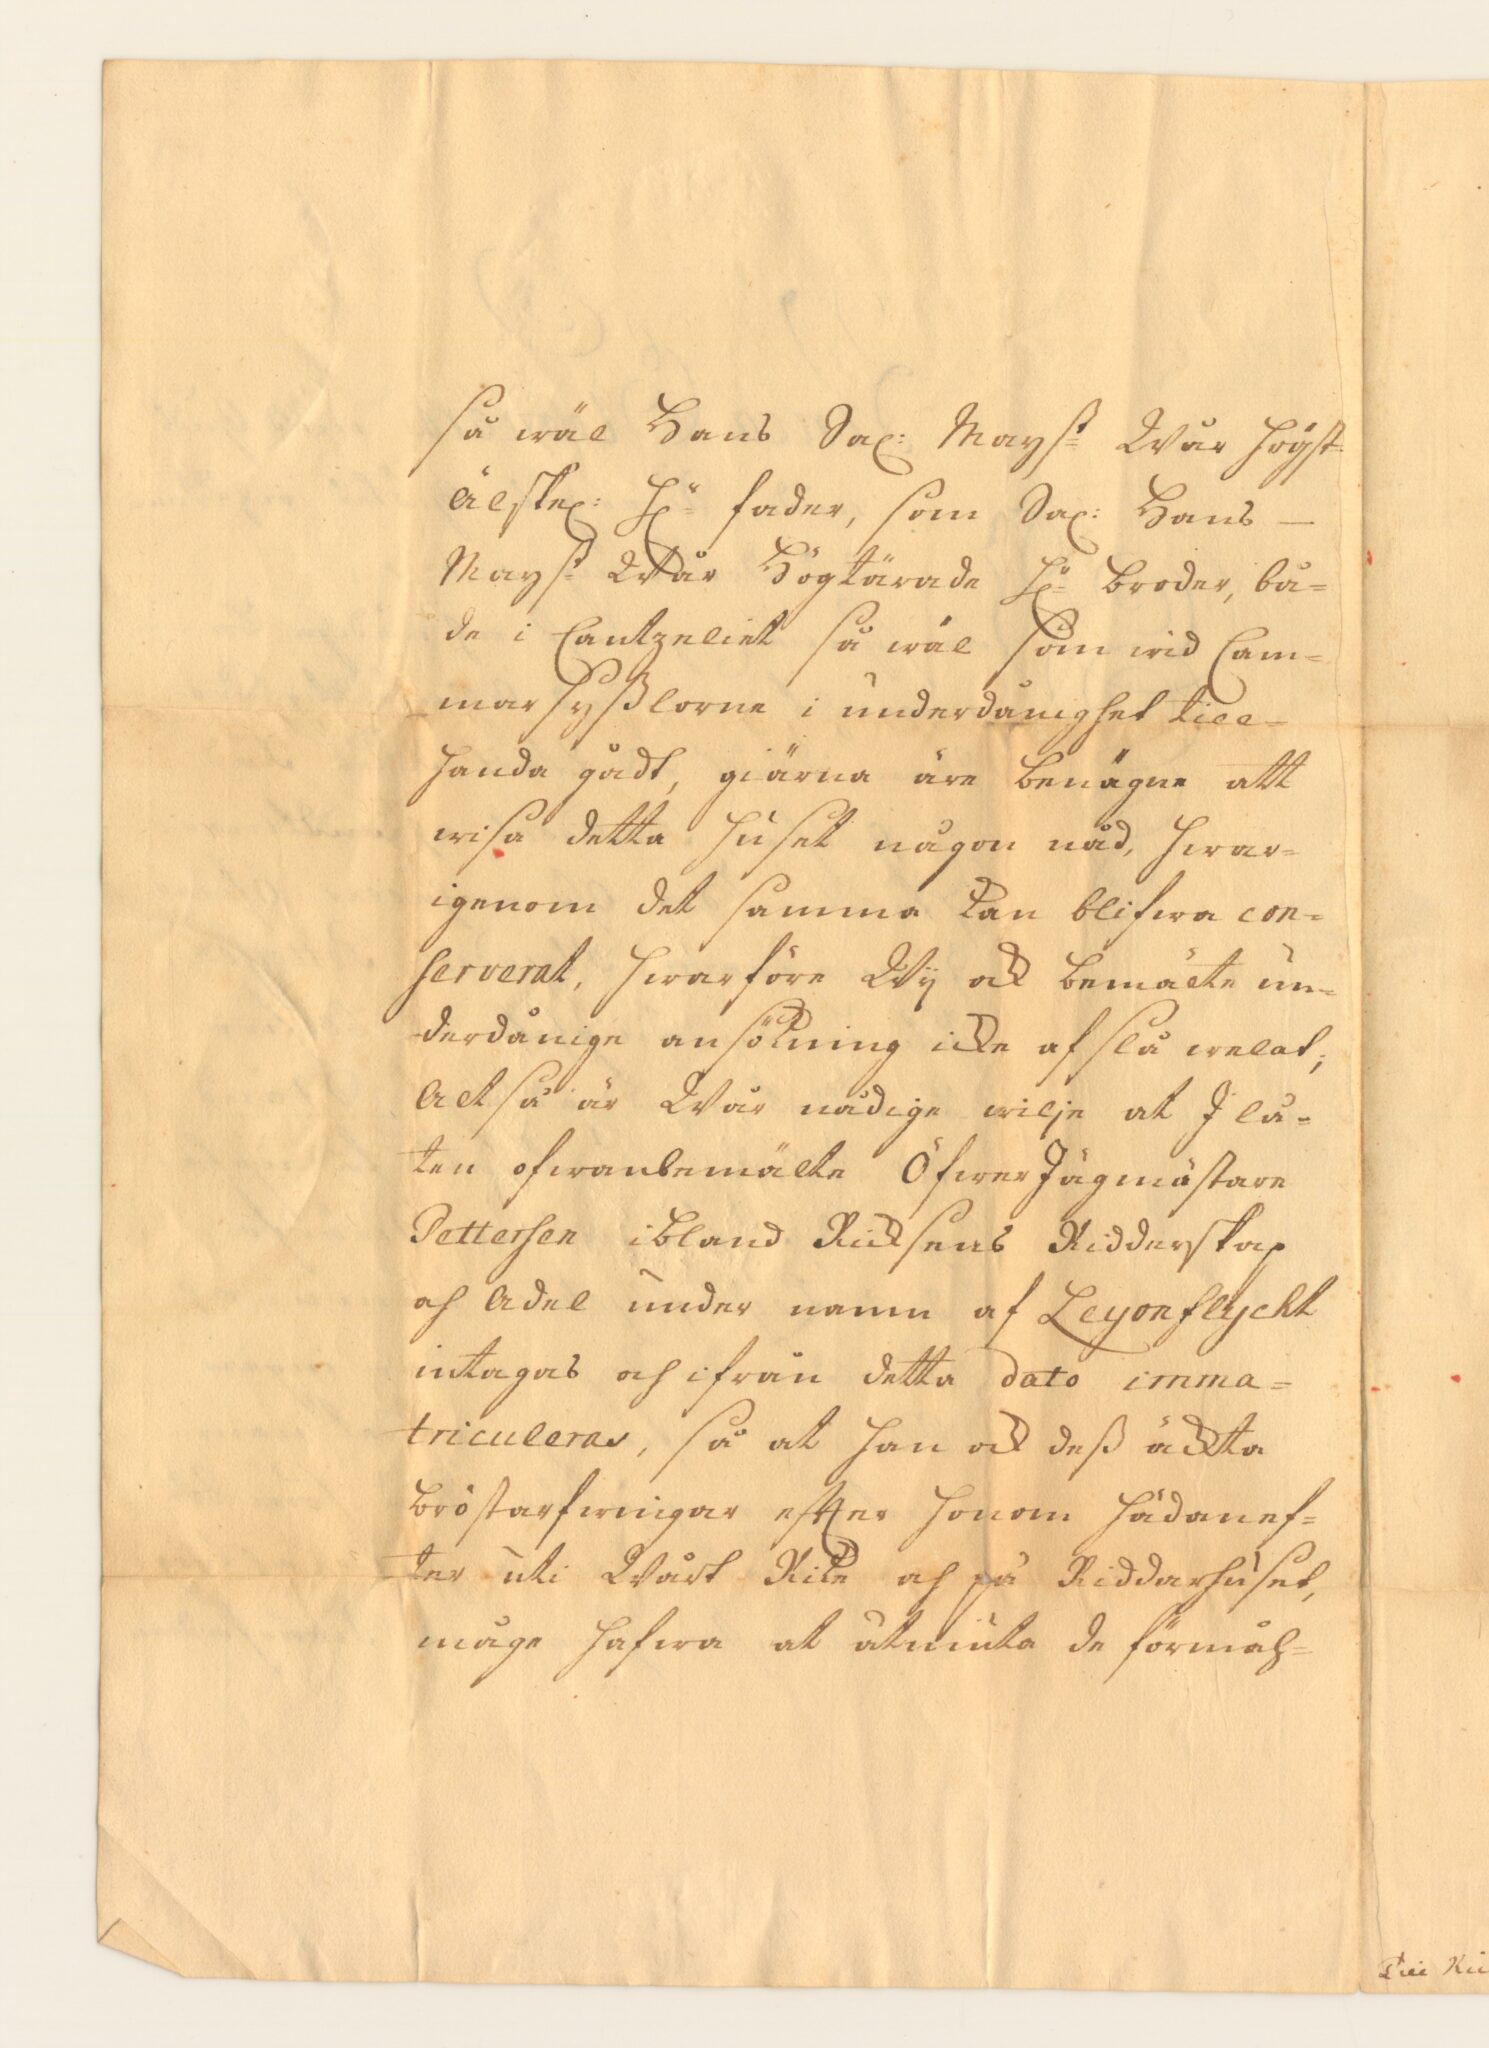 så wäl Hans Sal: Mayst: Wår högst-
älskel: Hr fader, som Sal: Hans —
Mayst: Wår Högtärade Hr broder, bå=
de i Cantzeliet så wäl som wid Cam=
marsyßlorne i underdånighet till=
handa gådt, giärna äre benägne att
wisa detta huset någon nåd, hwar=
igenom det samma kan blifwa con=
serverat, hwarföre Wij ock bemälte un=
derdånige ansökning icke afslå welat;
Altså är Wår nådige wilje at I lå=
ten ofwanbemälte ÖfwerJägmästare
Pettersen ibland Ricksens Ridderskap
och Adel under namn af Leyonflycht
intagas och ifrån detta dato imma=
triculeras, så at han ock deß äckta
bröstarfwingar efter honom hädanef=
ter uti Wårt Rike och på Riddarhuset,
måge hafwa at åtniuta de förmåh=
Till Rid